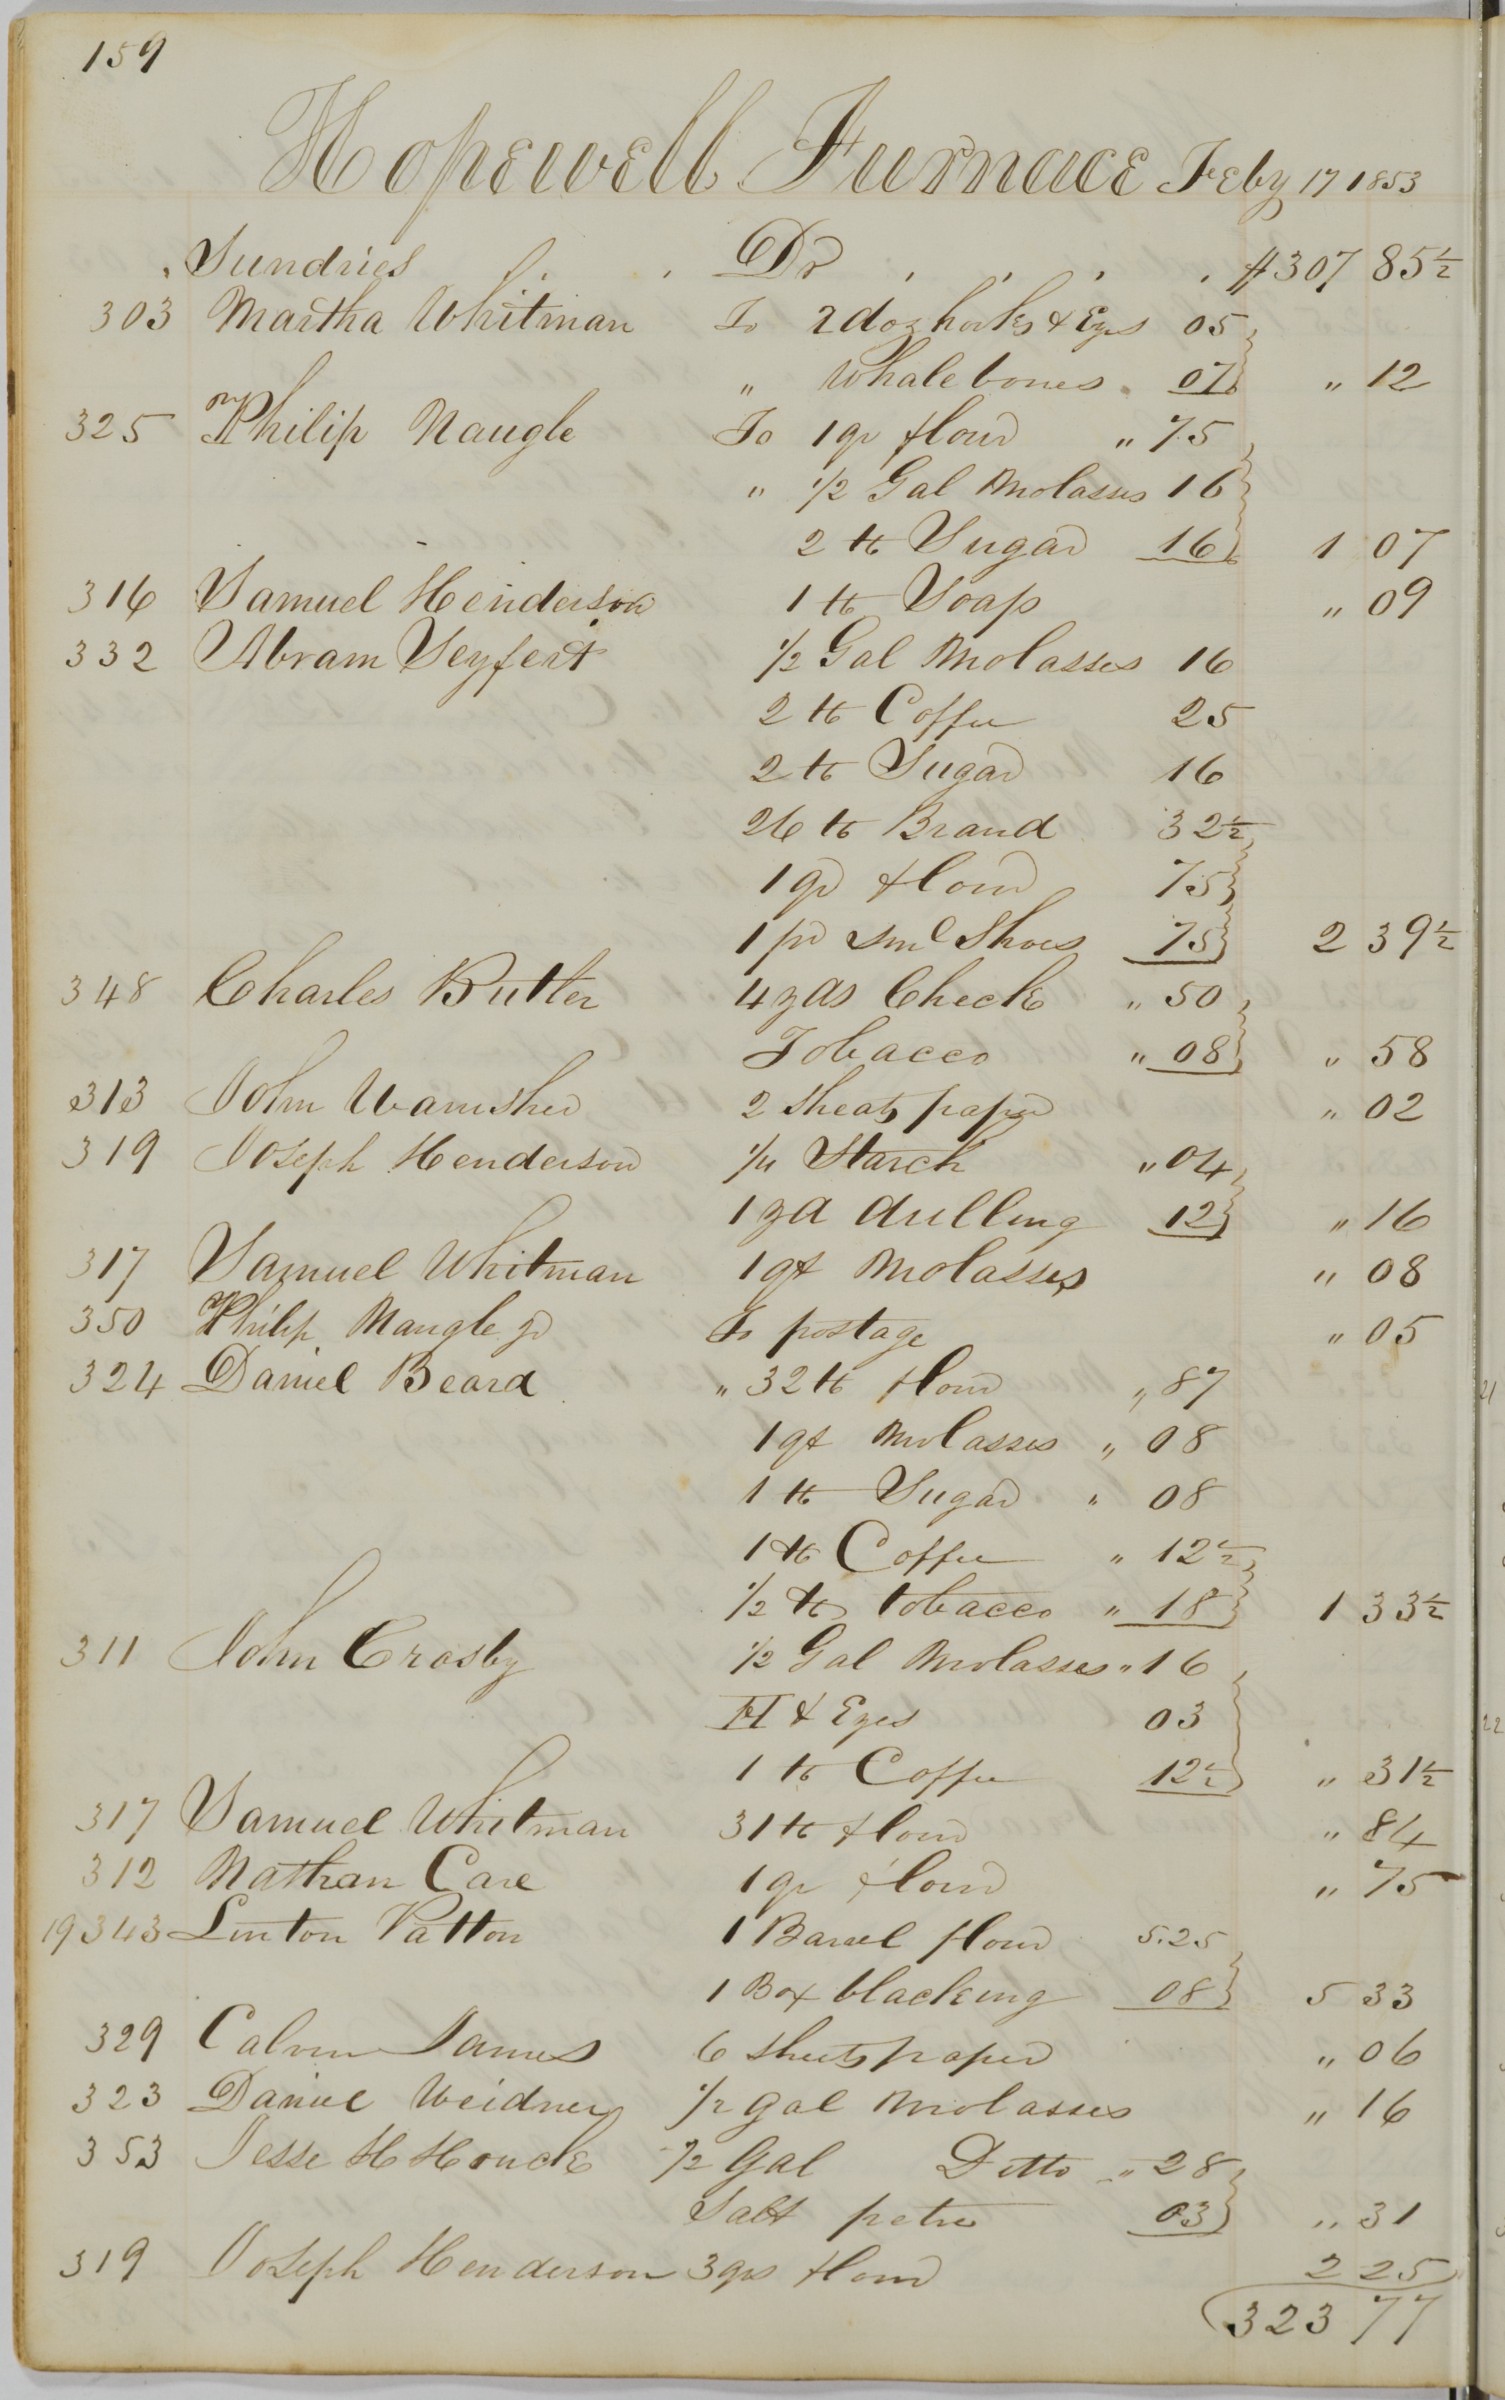 159
Hopewell Furnace Feby 17 1853
Sundries Dr $307 85½
303 Martha Whitman To 2 doz hooks & Eyes 05
" Whalebones 07 " 12
325 Philip Naugle To 1 qr flour " 75
" 1/2 Gal Molasses 16
2 lb Sugar 16 1 07
316 Samuel Henderson 1 lb Soap " 09
332 Abram Seyfert 1/2 Gal Molasses 16
2 lb Coffee 25
2 lb Sugar 16
26 lb Brand 32½
1 qr flour 75
1 pr Sml Shoes 75 2 39½
348 Charles Butler 4 yds Check " 50
Tobacco " 08 " 58
313 John Wamsher 2 Sheats paper " 02
319 Joseph Henderson 1/4 Starch " 04
1 yd drilling 12 " 16
317 Samuel Whitman 1 qt Molasses " 08
350 Philip Naugle jr To postage " 05
324 Daniel Beard " 32 lb flour " 87
1 qt Molasses " 08
1 lb Sugar " 08
1 lb Coffee " 12½
1/2 lb tobacco " 18 1 33½
311 John Crosby 1/2 Gal Molasses " 16
H & Eyes 03
1 lb Coffee 12½ " 31½
317 Samuel Whitman 31 lb flour " 84
312 Nathan Care 1 qr flour " 75
19 343 Linton Patton 1 Barrel flour 5.25
1 Box blacking 08 5 33
329 Calvin James 6 sheets paper " 06
323 Daniel Weidner 1/2 gal Molasses " 16
353 Jesse H Houck 1/2 Gal Ditto " 28
Salt petre 03 " 31
319 Joseph Henderson 3 qrs flour 2 25
323 77